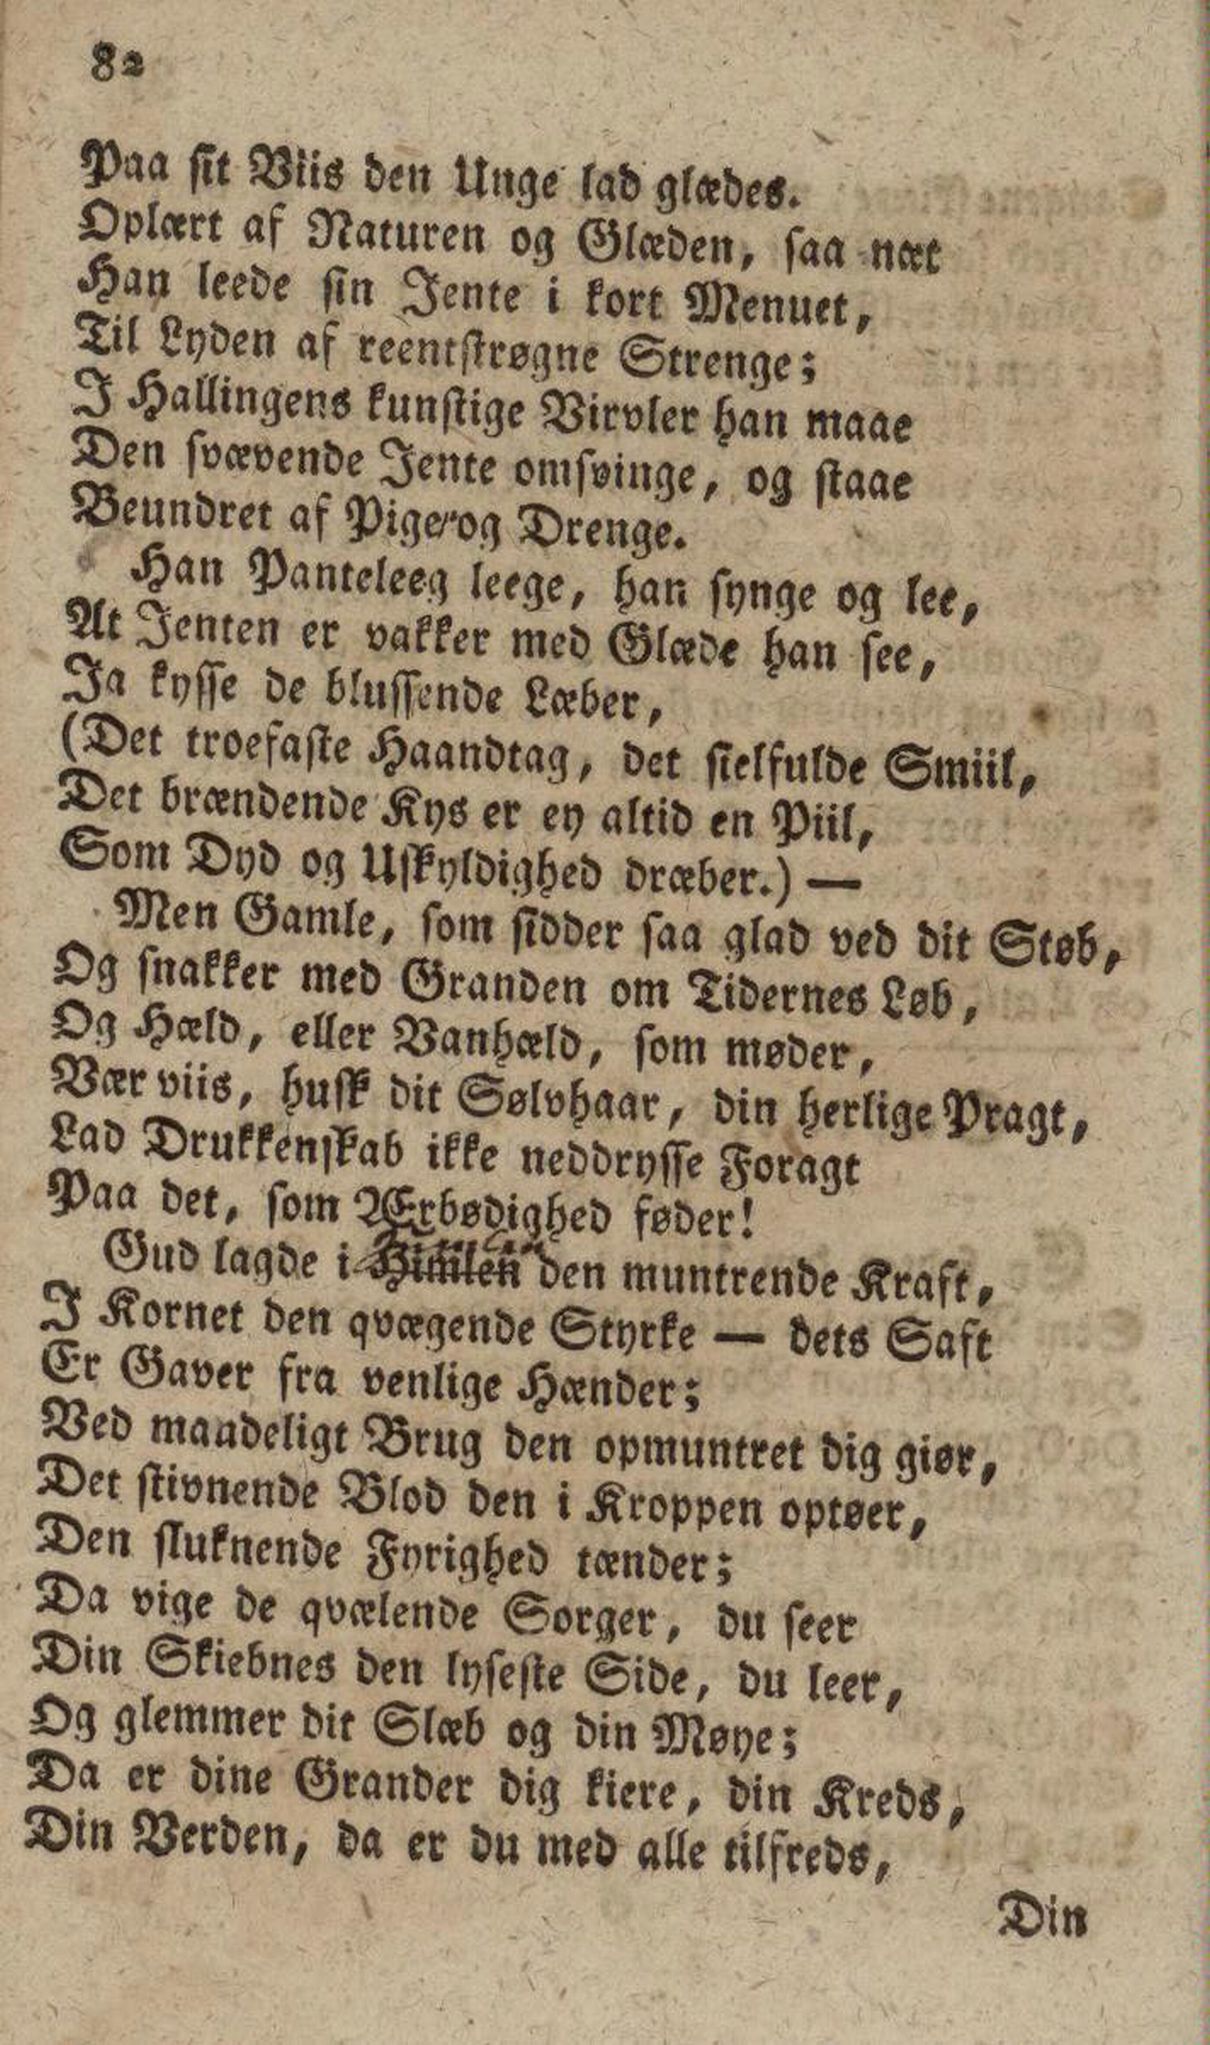 82
Paa sit Viis den Unge lad glædes.
Oplært af Naturen og Glæden, saa næt
Han leede sin Jente i kort Menuet,
Til Lyden af reentstrøgne Strenge;
I Hallingens kunstige Virvler han maae
Den svævende Jente omsvinge, og staae
Beundret af Piger og Drenge.
Han Panteleeg leege, han synge og lee,
At Jenten er vakker med Glæde han see,
Ja kysse de blussende Læber,
(Det troefaste Haandtag, det sielfulde Smiil,
Det brændende Kys er ey altid en Piil,
Som Dyd og Uskyldighed dræber.) —
Men Gamle, som sidder saa glad ved dit Støb,
Og snakker med Granden om Tidernes Løb,
Og Hæld, eller Vanhæld, som møder,
Vær viis, husk dit Sølvhaar, din herlige Pragt,
Lad Drukkenskab ikke neddrysse Foragt
Paa det, som Ærbødighed føder!
Gud lagde i Himlen den muntrende Kraft,
I Kornet den qvægende Styrke — dets Saft
Er Gaver fra venlige Hænder;
Ved maadeligt Brug den opmuntret dig giør,
Det stivnende Blod den i Kroppen optøer,
Den sluknende Fyrighed tænder;
Da vige de qvælende Sorger, du seer
Din Skiebnes den lyseste Side, du leer,
Og glemmer dit Slæb og din Møye;
Da er dine Grander dig kiere, din Kreds,
Din Verden, da er du med alle tilfreds,
Din